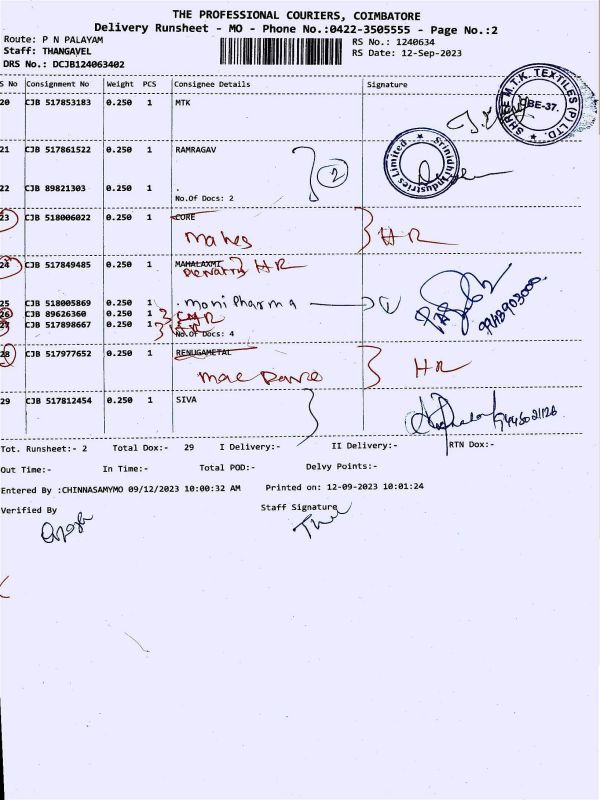 THE PROFESSIONAL COURIERS, COIMBATORE
Delivery Runsheet - MO - Phone No.:0422-3505555 - Page No.:2
Route: P N PALAYAM
RS No.: 1240634
Staff: THANGAVEL
RS Date: 12-Sep-2023
DRS No.: DCJB124063402
S No Consignment No Weight PCS Consignee Details Signature
20 CJB 517853183 0.250 1 MTK
SHREE M.T.K. TEXTILES (P) LTD. CBE-37.
21 CJB 517861522 0.250 1 RAMRAGAV
2
Srinidhi Industries Limited
22 CJB 89821303 0.250 1 .
No.Of Docs: 2
23 CJB 518006022 0.250 1 CORE
Mahes HR
24 CJB 517849485 0.250 1 MAHALAXMI
HR
25 CJB 518005869 0.250 1 . moni Pharma
26 CJB 89626360 0.250 1
27 CJB 517898667 0.250 1
No.Of Docs: 4
28 CJB 517977652 0.250 1 RENUGAMETAL
HR
29 CJB 517812454 0.250 1 SIVA
Tot. Runsheet:- 2 Total Dox:- 29 I Delivery:- II Delivery:- RTN Dox:-
Out Time:- In Time:- Total POD:- Delvy Points:-
Entered By :CHINNASAMYMO 09/12/2023 10:00:32 AM Printed on: 12-09-2023 10:01:24
Verified By Staff Signature